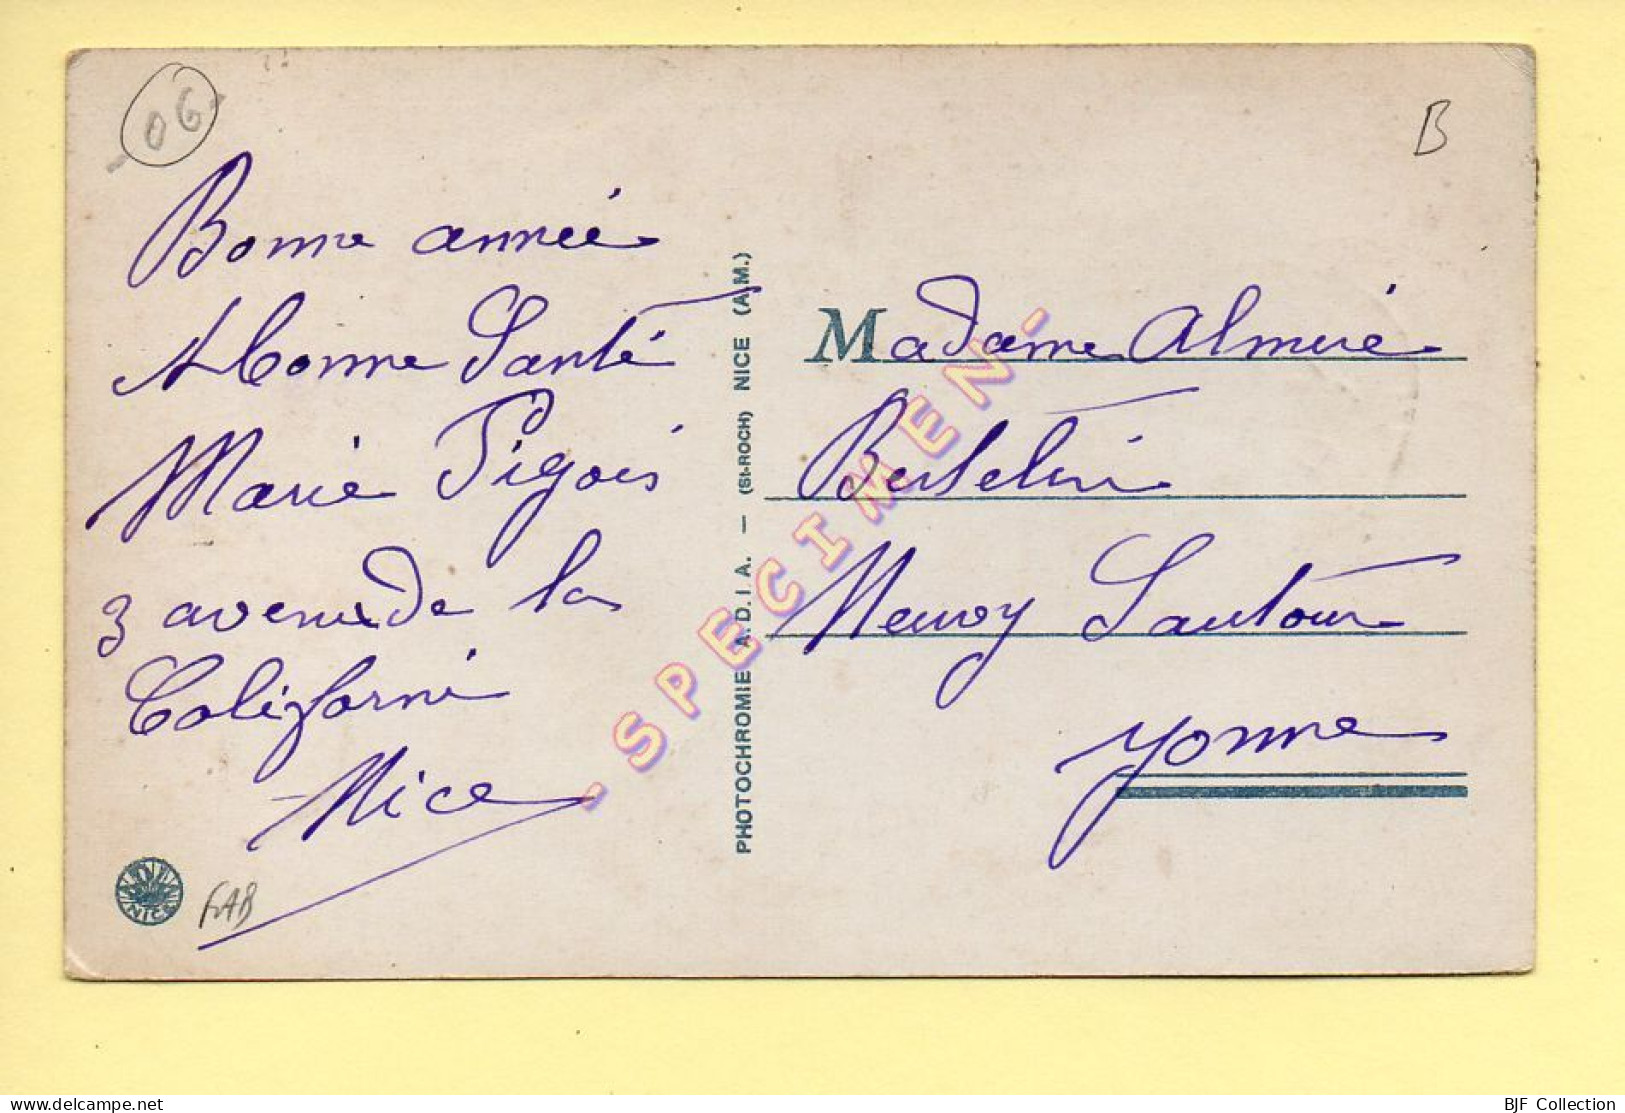 06
B
Bonne année
& bonne Santé
Marie Pigois
3 avenue de la
Californi
Nice
FAB
NICE
PHOTOCHROMIE A.D.I.A. — (St-ROCH) NICE (A.M.)
- SPECIMEN -
Madame Almire
Berthelin
Neuvoy Sautour
Yonne
BJF Collection